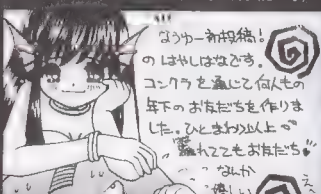 なうゅー新投稿!
のはやしはなです。
コンクラを通じて何人もの
年下のおともだちを作りま
した。ひとまわり以上
離れててもおともだち!
なんか
嬉しい
え